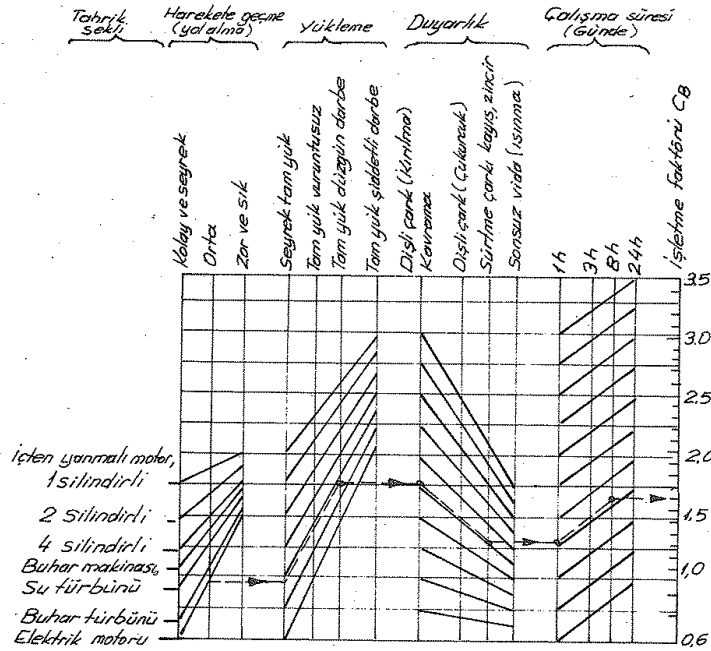 Tahrik şekli
Harekete geçme (yol alma)
Yükleme
Duyarlık
Çalışma süresi (Günde)
Kolay ve seyrek
Orta
Zor ve sık
Seyrek tam yük
Tam yük vuruntusuz
Tam yük düzgün darbe
Tam yük şiddetli darbe
Dişli çark (Kırılma)
Kavrama
Dişli çark (Çukurcuk)
Sürtme çarkı kayış, zincir
Sonsuz vida (ısınma)
1h
3h
8h
24h
İşletme faktörü CB
3.5
3.0
2.5
2,0
1.5
1,0
0,6
İçten yanmalı motor,
1 silindirli
2 silindirli
4 silindirli
Buhar makinası,
Su türbünü
Buhar türbünü
Elektrik motoru